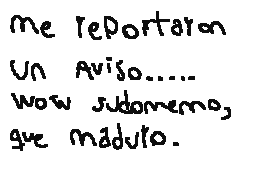 me reportaron
un Aviso.....
wow sudomemo,
que maduro.